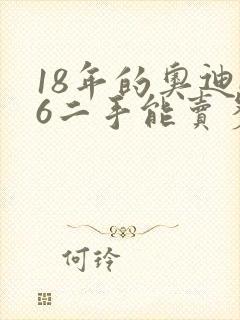 18年的奥迪
6二手能賣
何玲